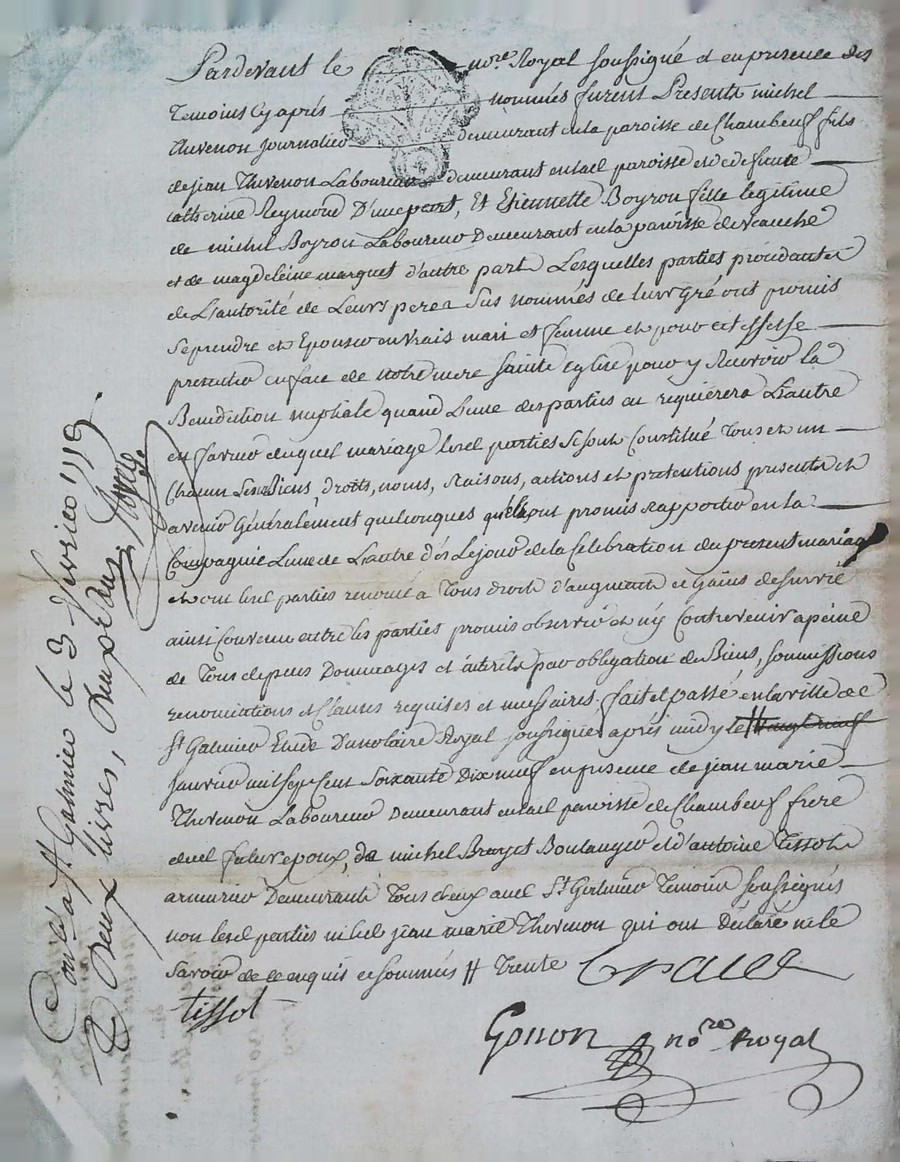 Pardevant le nore Royal soussigné et en presence des
Temoins cy aprés nommés furent Presents michel
Thevenon journalier demeurant en la paroisse de Chambeuf fils
de jean Thevenon Laboureur demeurant en lad paroisse et de defunte
catherine Reymond D'une part, Et Etiennette Boyron fille legitime
de michel Boyron Laboureur Demeurant en la paroisse de veauche
et de magdeleine marquet d'autre part Lesquelles parties procedantes
de L'autorité de Leurs peres sus nommés de leur gré ont promis
se prendre et Epouser en vrais mari et femme et pour cet effet se
presenter en face de notre mere sainte eglise pour y recevoir la
Benediction nuptiale quand L'une des parties en requierera L'autre
en faveur duquel mariage lesd parties se sont Constitué Tous et un
chacun Leurs Biens, droits, noms, Raisons, actions et pretentions presents et
avenir Généralement quelconques qu'ils ont promis rapporter en la
Compagnie L'une de L'autre dès Le jour de la Celebration du present mariage
et ont lesd parties renoncé a Tous droits d'augment et Gains de survie
ainsi Convenu entre les parties promis observer et n'y Contrevenir a peine
de Tous depens Dommages et interets par obligation de Biens, soumissions
renonciations et Clauses requises et necessaires. fait et passé en la ville de
St Galmier Etude Du notaire Royal soussigné après midy le # vingt neuf
janvier mil sept cent soixante Dix neuf en presence de jean marie
Thevenon Laboureur Demeurant en lad paroisse de Chambeuf frere
dud futur epoux, de michel Bruyet Boulanger et d'antoine Tissot
armurier Demeurants Tous deux aud St Galmier Temoins soussignés
non lesd parties ni led jean marie Thevenon qui ont Déclaré ne le
savoir de ce enquis et sommés # Trente
tissot
Gonon nore Royal
Conlé a St Galmier le 3 Fevrier 1779.
R Deux livres, Deux sols